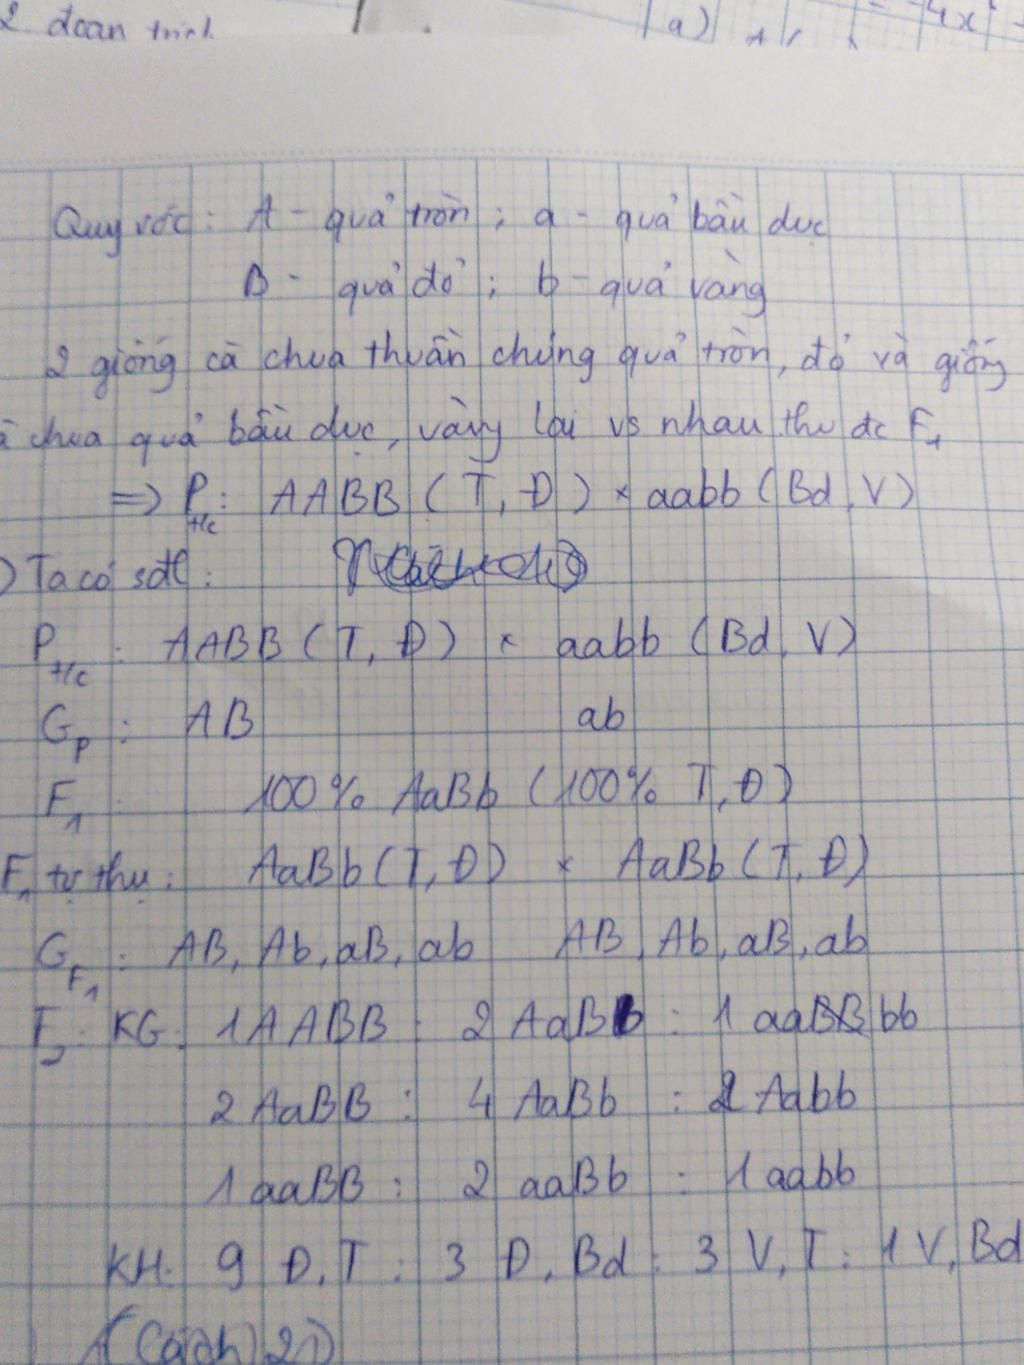 2 đoan trình
a)
4x
Quy ước : A - quả tròn ; a - quả bầu dục
B - quả đỏ ; b - quả vàng
2 giống cà chua thuần chủng quả tròn, đỏ và giống
à chua quả bầu dục, vàng lai vs nhau thu đc F1
=> Pt/c : AABB ( T, Đ ) × aabb ( Bd, V )
) Ta có sđl :
Pt/c : AABB ( T, Đ ) × aabb ( Bd, V )
GP : AB ab
F1 : 100% AaBb ( 100% T, Đ )
F1 tự thụ : AaBb ( T, Đ ) × AaBb ( T, Đ )
GF1 : AB, Ab, aB, ab AB, Ab, aB, ab
F2 : KG : 1 AABB : 2 AaBb : 1 aaBB bb
2 AaBB : 4 AaBb : 2 Aabb
1 aaBB : 2 aaBb : 1 aabb
KH : 9 Đ, T : 3 Đ, Bd : 3 V, T : 1 V, Bd
(Cách 2)